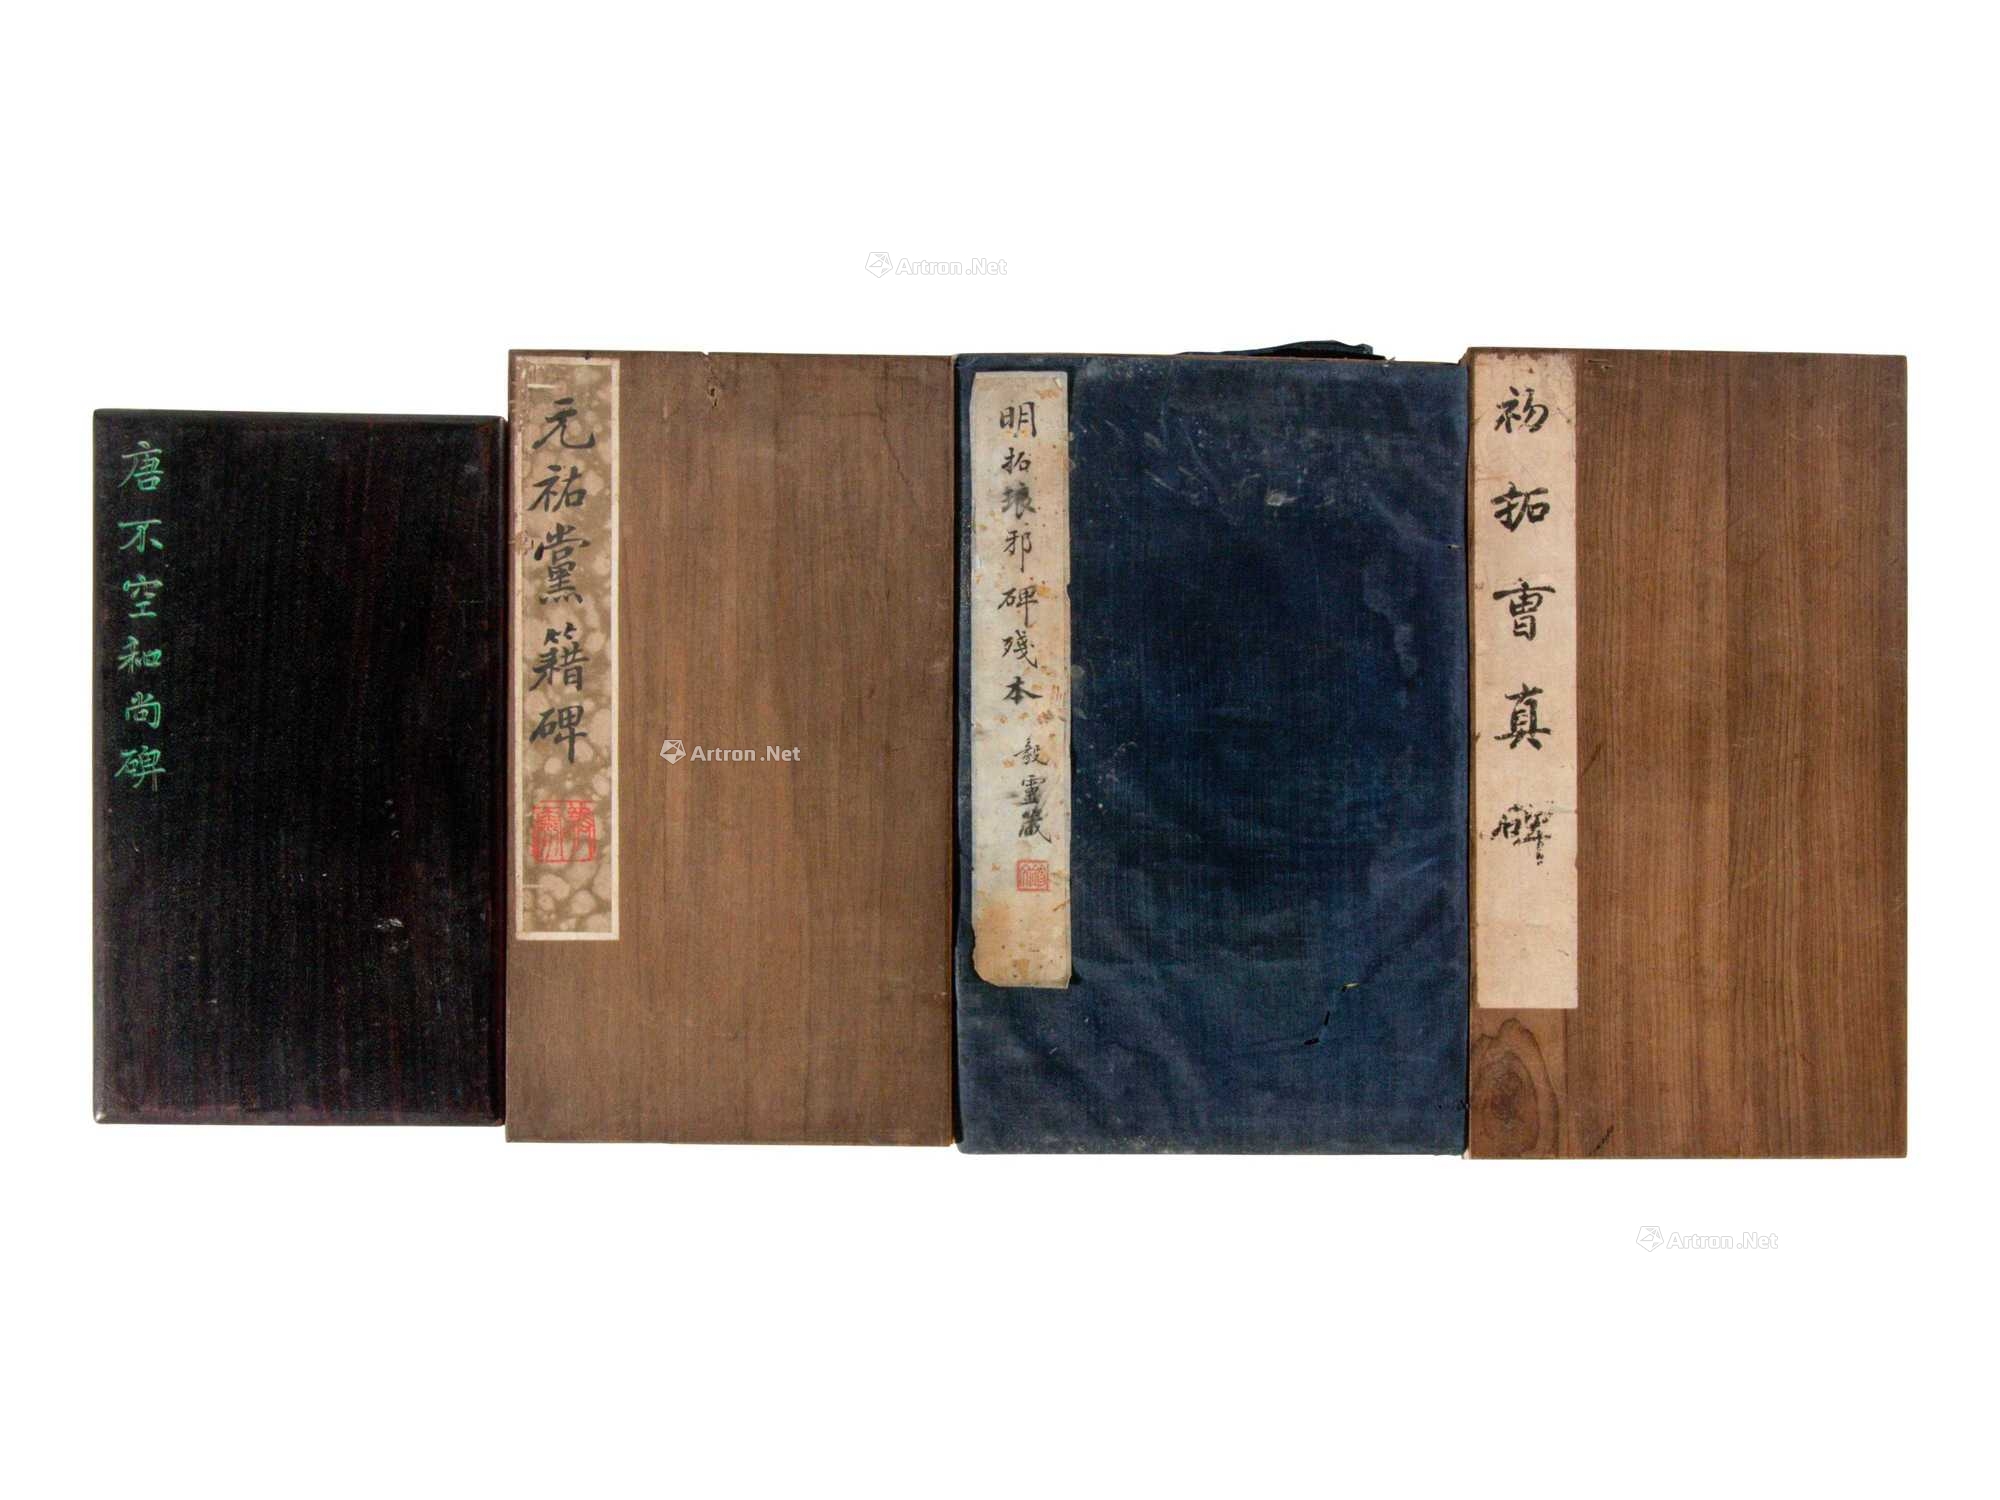 Artron.Net
唐不空和尚碑
元祐黨籍碑
Artron.Net
明拓琅邪碑殘本
毅靈藏
初拓曹真碑
Artron.Net